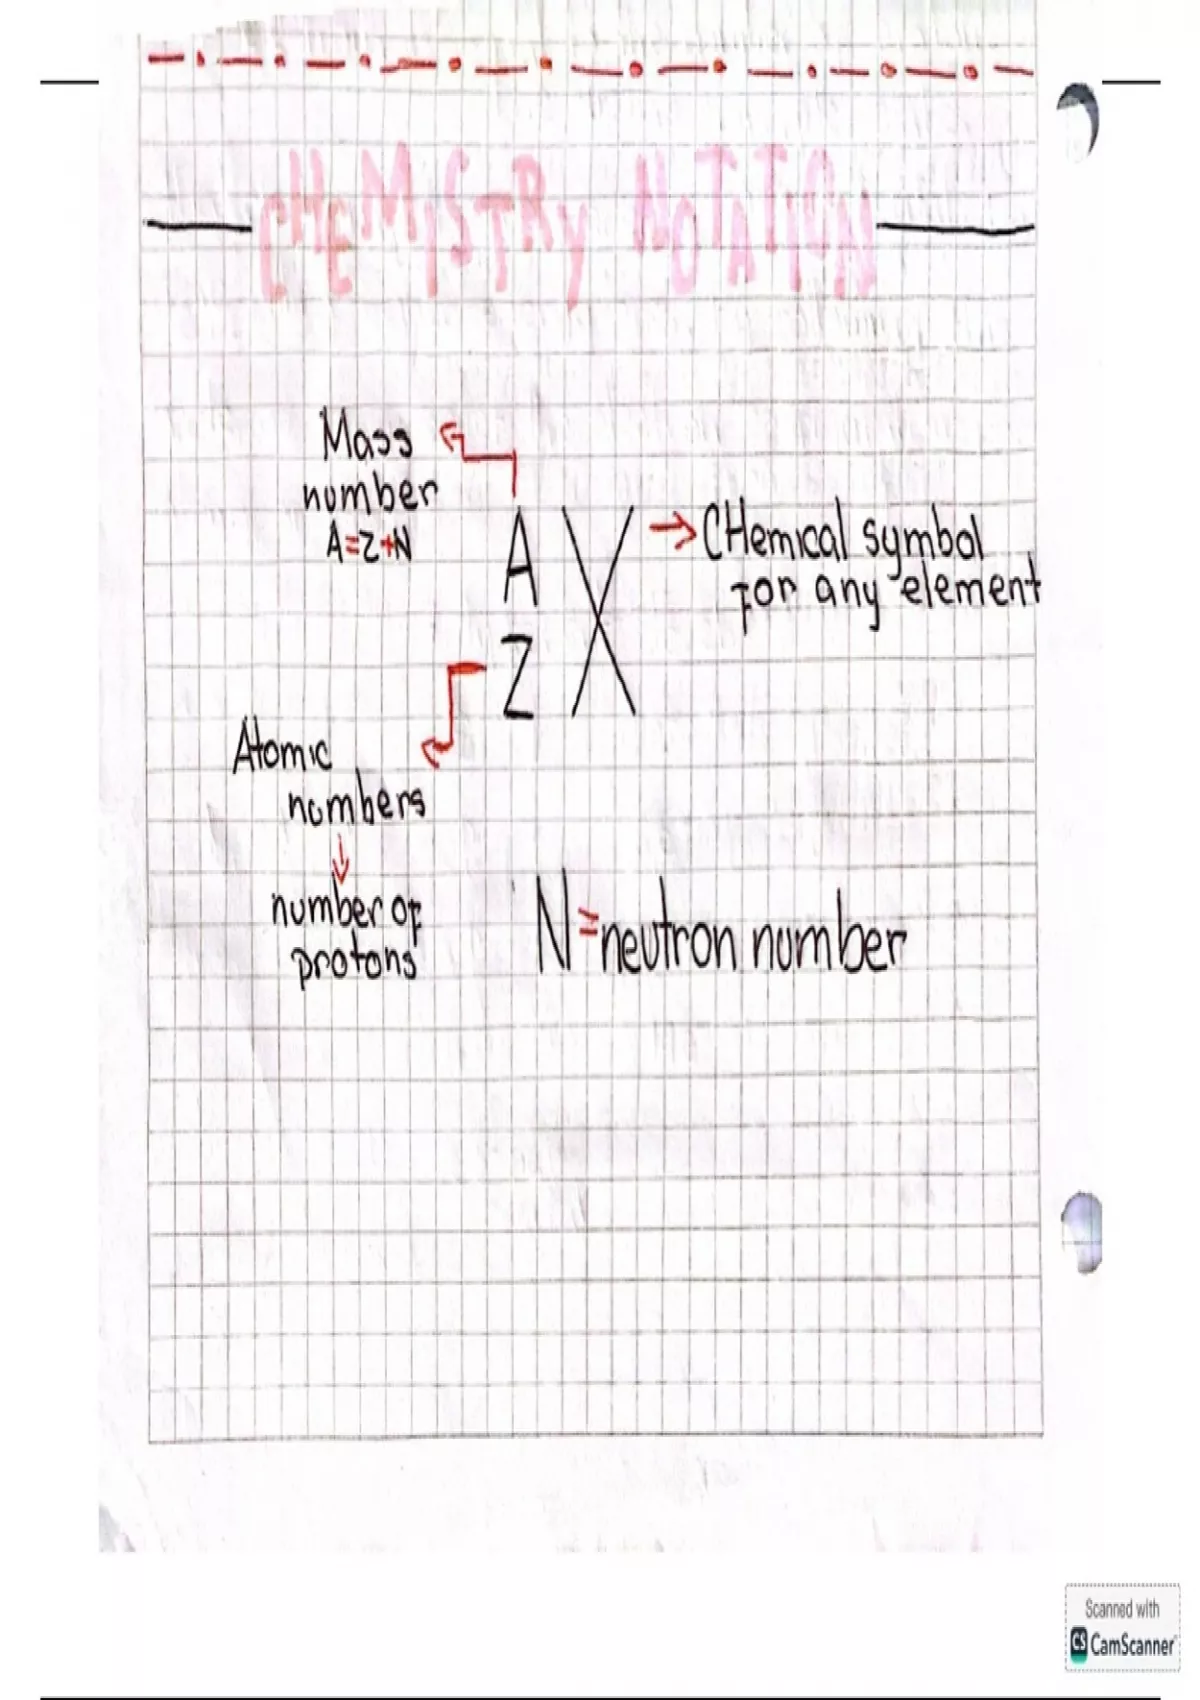 CHEMISTRY NOTATION
Mass
number
A=Z+N
A X
Z
CHemical symbol
for any element
Atomic
numbers
number of
protons
N=neutron number
Scanned with
CS CamScanner